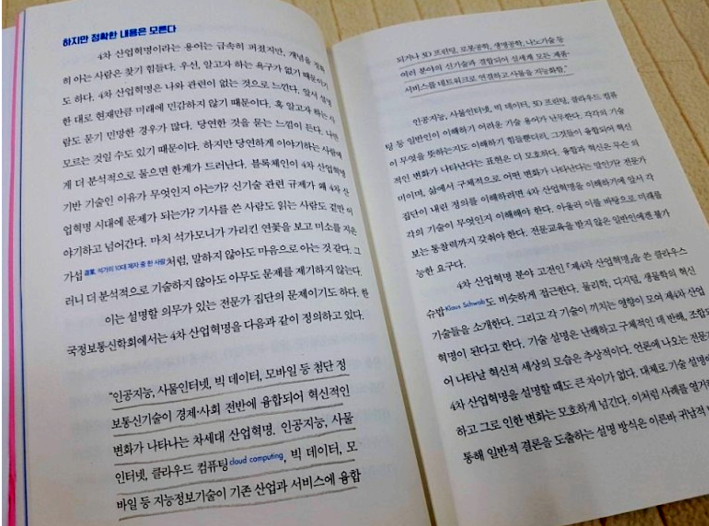 하지만 정확한 내용은 모른다
4차 산업혁명이라는 용어는 급속히 퍼졌지만, 개념을 정확
히 아는 사람은 찾기 힘들다. 우선, 알고자 하는 욕구가 없기 때문이기
도 하다. 4차 산업혁명은 나와 관련이 없는 것으로 느낀다. 앞서 설명
한 대로 현재만큼 미래에 민감하지 않기 때문이다. 혹 알고자 하는 사
람도 묻기 민망한 경우가 많다. 당연한 것을 묻는 느낌이 든다. 나만
모르는 것일 수도 있기 때문이다. 하지만 당연하게 이야기하는 사람에
게 더 분석적으로 물으면 한계가 드러난다. 블록체인이 4차 산업혁명
기반 기술인 이유가 무엇인지 아는가? 신기술 관련 규제가 왜 4차 산
업혁명 시대에 문제가 되는가? 기사를 쓴 사람도 읽는 사람도 겉만 이
야기하고 넘어간다. 마치 석가모니가 가리킨 연꽃을 보고 미소를 지은
가섭 석가의 10대 제자 중 한 사람처럼, 말하지 않아도 마음으로 아는 것 같다. 그
러니 더 분석적으로 기술하지 않아도 아무도 문제를 제기하지 않는다.
이는 설명할 의무가 있는 전문가 집단의 문제이기도 하다. 한
국정보통신학회에서는 4차 산업혁명을 다음과 같이 정의하고 있다.
“인공지능, 사물인터넷, 빅 데이터, 모바일 등 첨단 정
보통신기술이 경제·사회 전반에 융합되어 혁신적인
변화가 나타나는 차세대 산업혁명. 인공지능, 사물
인터넷, 클라우드 컴퓨팅cloud computing, 빅 데이터, 모
바일 등 지능정보기술이 기존 산업과 서비스에 융합
되거나 3D 프린팅, 로봇공학, 생명공학, 나노기술 등
여러 분야의 신기술과 결합되어 실세계 모든 제품·
서비스를 네트워크로 연결하고 사물을 지능화함.”
인공지능, 사물인터넷, 빅 데이터, 3D 프린팅, 클라우드 컴퓨
팅 등 일반인이 이해하기 어려운 기술 용어가 난무한다. 각각의 기술
이 무엇을 뜻하는지도 이해하기 힘들뿐더러, 그것들이 융합되어 혁신
적인 변화가 나타난다는 표현은 더 모호하다. 융합과 혁신은 무슨 의
미이며, 삶에서 구체적으로 어떤 변화가 나타난다는 말인가? 전문가
집단이 내린 정의를 이해하려면 4차 산업혁명을 이해하기에 앞서 각
각의 기술이 무엇인지 이해해야 한다. 아울러 이를 바탕으로 미래를
보는 통찰력까지 갖춰야 한다. 전문교육을 받지 않은 일반인에겐 불가
능한 요구다.
4차 산업혁명 분야 고전인 『제4차 산업혁명』을 쓴 클라우스
슈밥Klaus Schwab도 비슷하게 접근한다. 물리학, 디지털, 생물학의 혁신
기술들을 소개한다. 그리고 각 기술이 끼치는 영향이 모여 제4차 산업
혁명이 된다고 한다. 기술 설명은 난해하고 구체적인 데 반해, 조합되
어 나타날 혁신적 세상의 모습은 추상적이다. 언론에 나오는 전문가
4차 산업혁명을 설명할 때도 큰 차이가 없다. 대체로 기술 설명에
하고 그로 인한 변화는 모호하게 넘긴다. 이처럼 사례를 열거
통해 일반적 결론을 도출하는 설명 방식은 이른바 귀납적